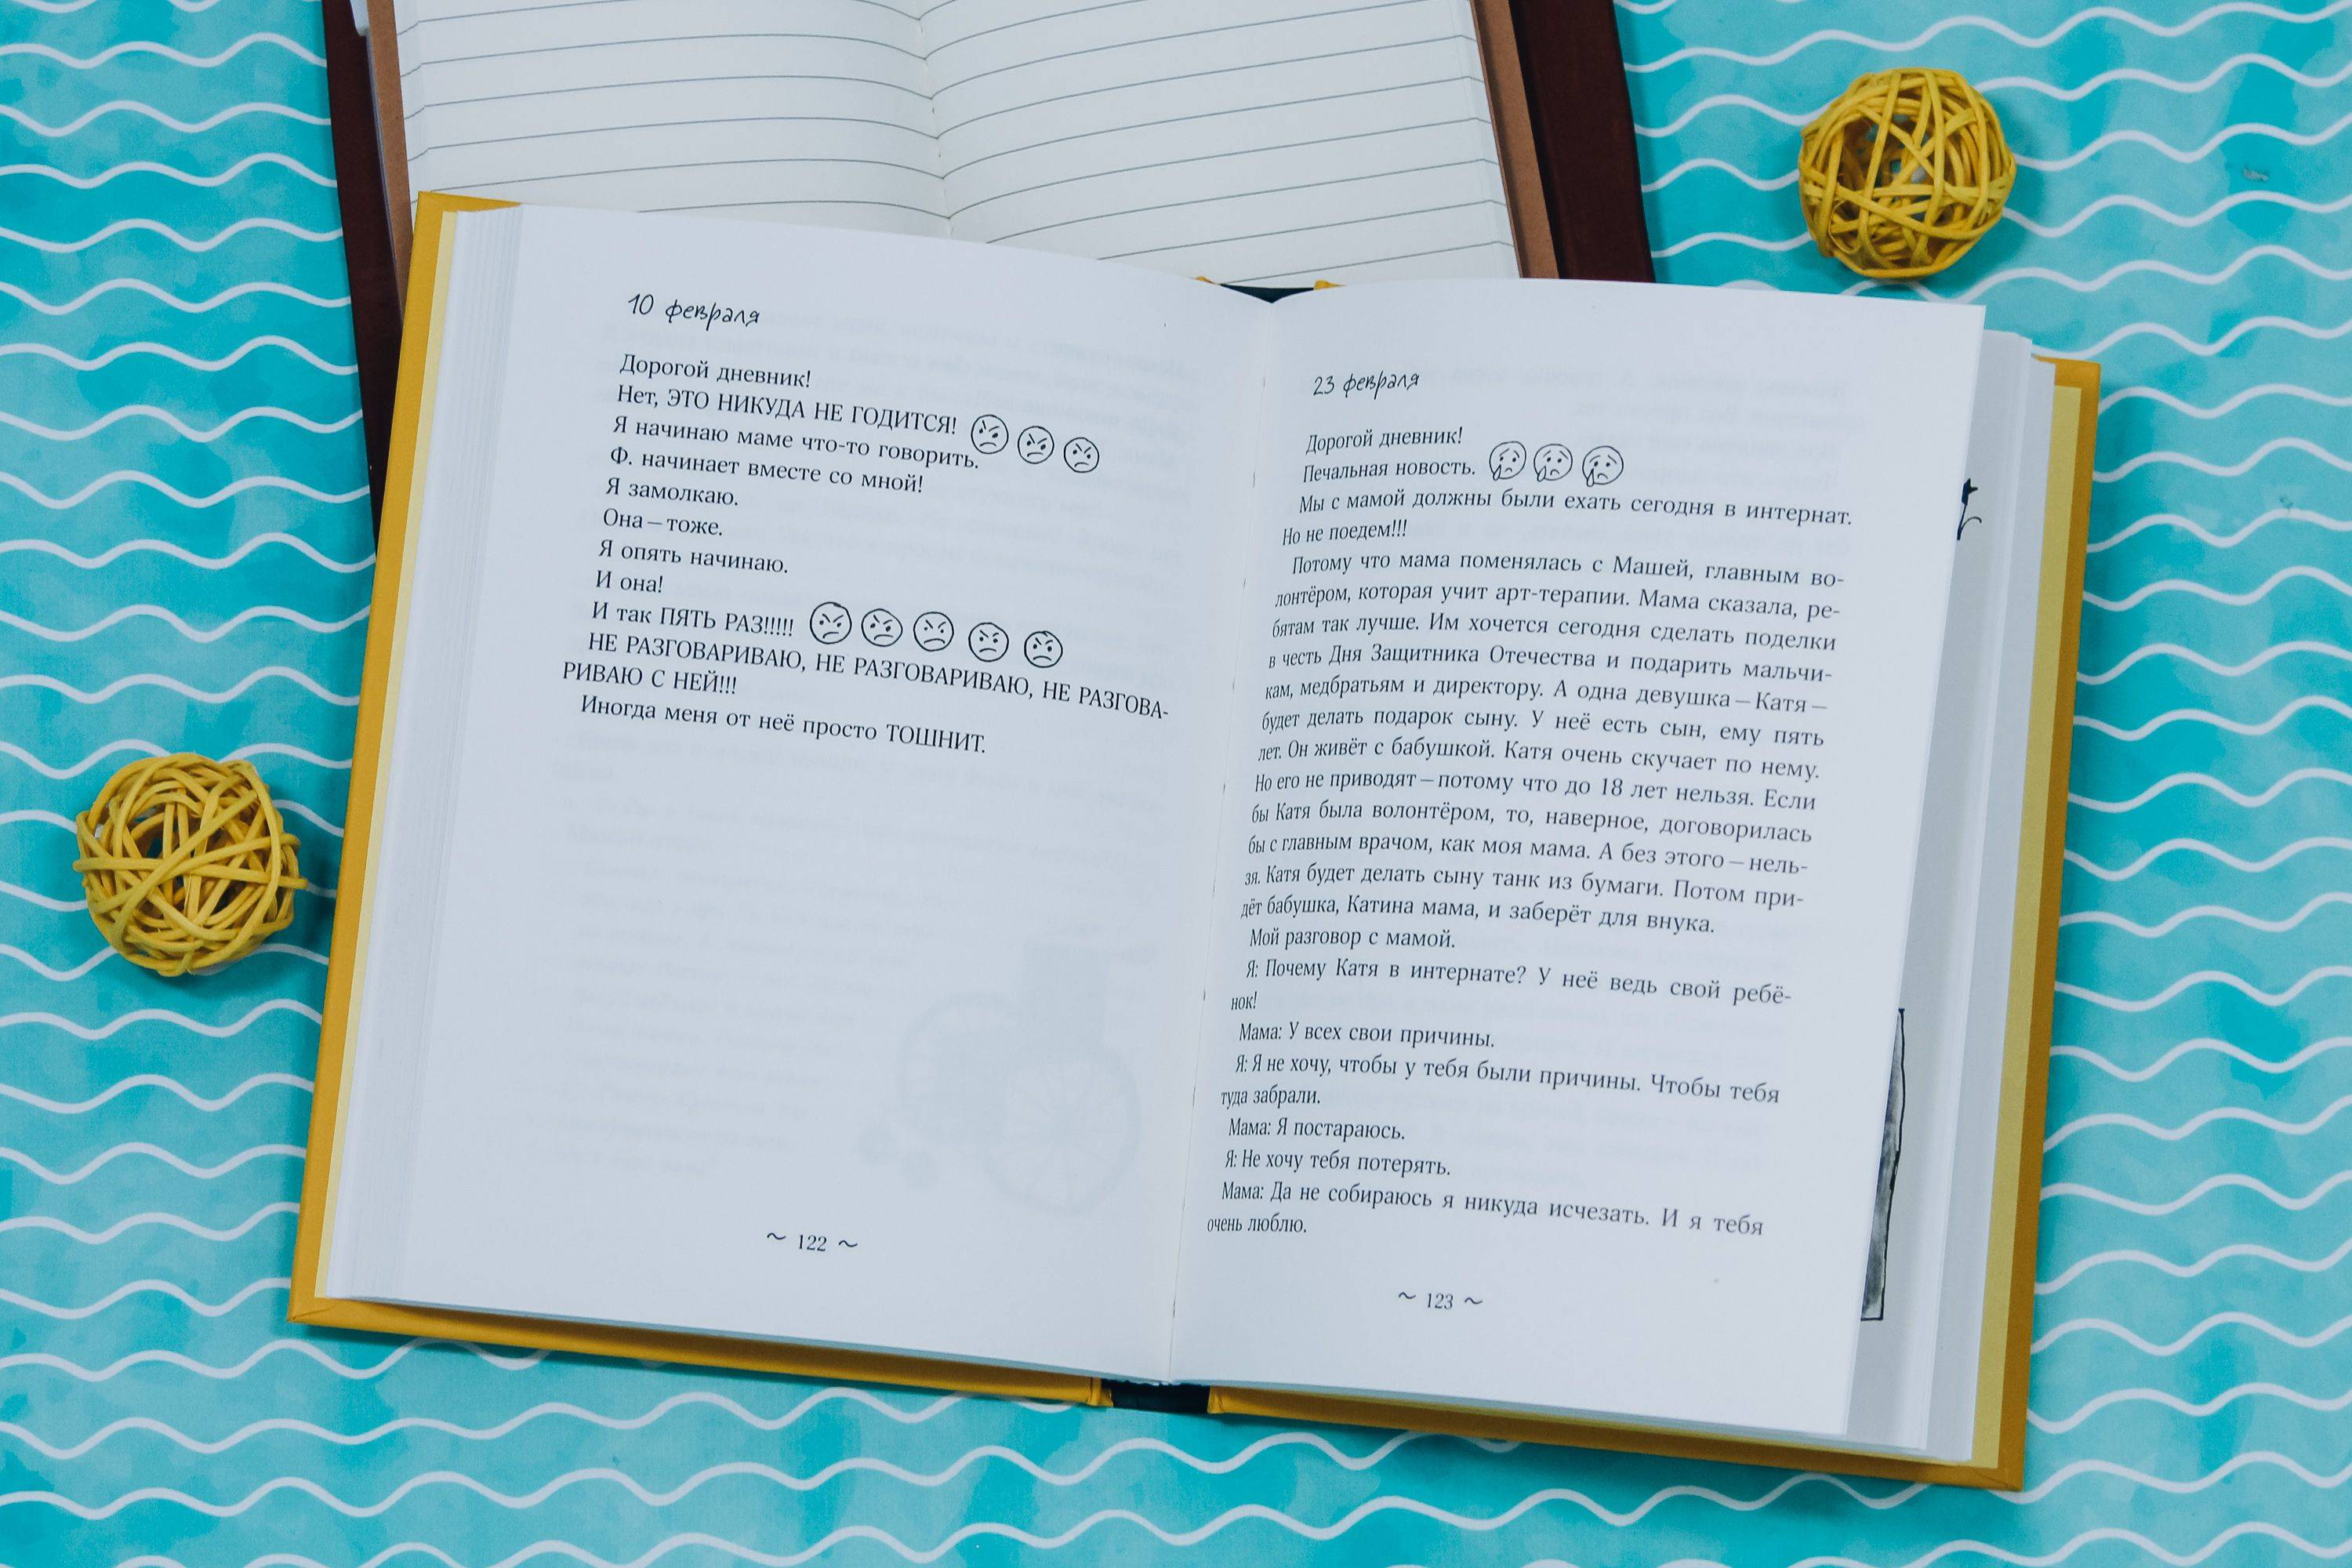 10 февраля
Дорогой дневник!
Нет, ЭТО НИКУДА НЕ ГОДИТСЯ!
Я начинаю маме что-то говорить.
Ф. начинает вместе со мной!
Я замолкаю.
Она – тоже.
Я опять начинаю.
И она!
И так ПЯТЬ РАЗ!!!!!
НЕ РАЗГОВАРИВАЮ, НЕ РАЗГОВАРИВАЮ, НЕ РАЗГОВА-
РИВАЮ С НЕЙ!!!
Иногда меня от неё просто ТОШНИТ.
~ 122 ~
23 февраля
Дорогой дневник!
Печальная новость.
Мы с мамой должны были ехать сегодня в интернат.
Но не поедем!!!
Потому что мама поменялась с Машей, главным во-
лонтёром, которая учит арт-терапии. Мама сказала, ре-
бятам так лучше. Им хочется сегодня сделать поделки
в честь Дня Защитника Отечества и подарить мальчи-
кам, медбратьям и директору. А одна девушка – Катя –
будет делать подарок сыну. У неё есть сын, ему пять
лет. Он живёт с бабушкой. Катя очень скучает по нему.
Но его не приводят – потому что до 18 лет нельзя. Если
бы Катя была волонтёром, то, наверное, договорилась
бы с главным врачом, как моя мама. А без этого – нель-
зя. Катя будет делать сыну танк из бумаги. Потом при-
дёт бабушка, Катина мама, и заберёт для внука.
Мой разговор с мамой.
Я: Почему Катя в интернате? У неё ведь свой ребё-
нок!
Мама: У всех свои причины.
Я: Я не хочу, чтобы у тебя были причины. Чтобы тебя
туда забрали.
Мама: Я постараюсь.
Я: Не хочу тебя потерять.
Мама: Да не собираюсь я никуда исчезать. И я тебя
очень люблю.
~ 123 ~